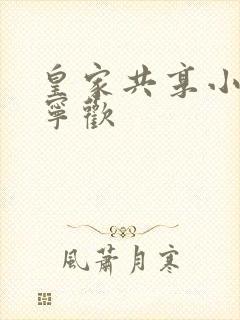 皇家共享小
寧歡
風蕭月寒